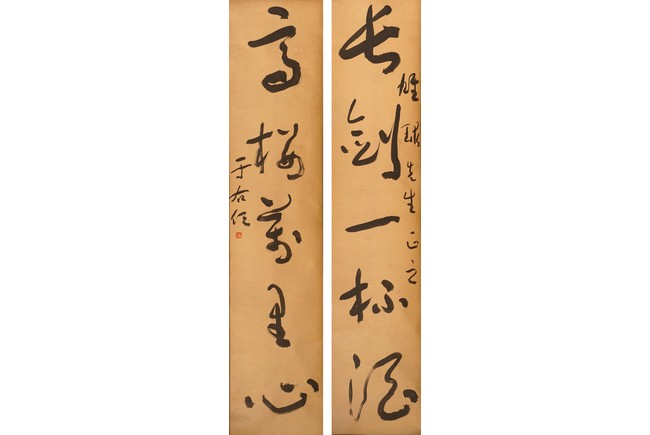 長劍一杯酒
先生正之
高樓萬里心
于右任